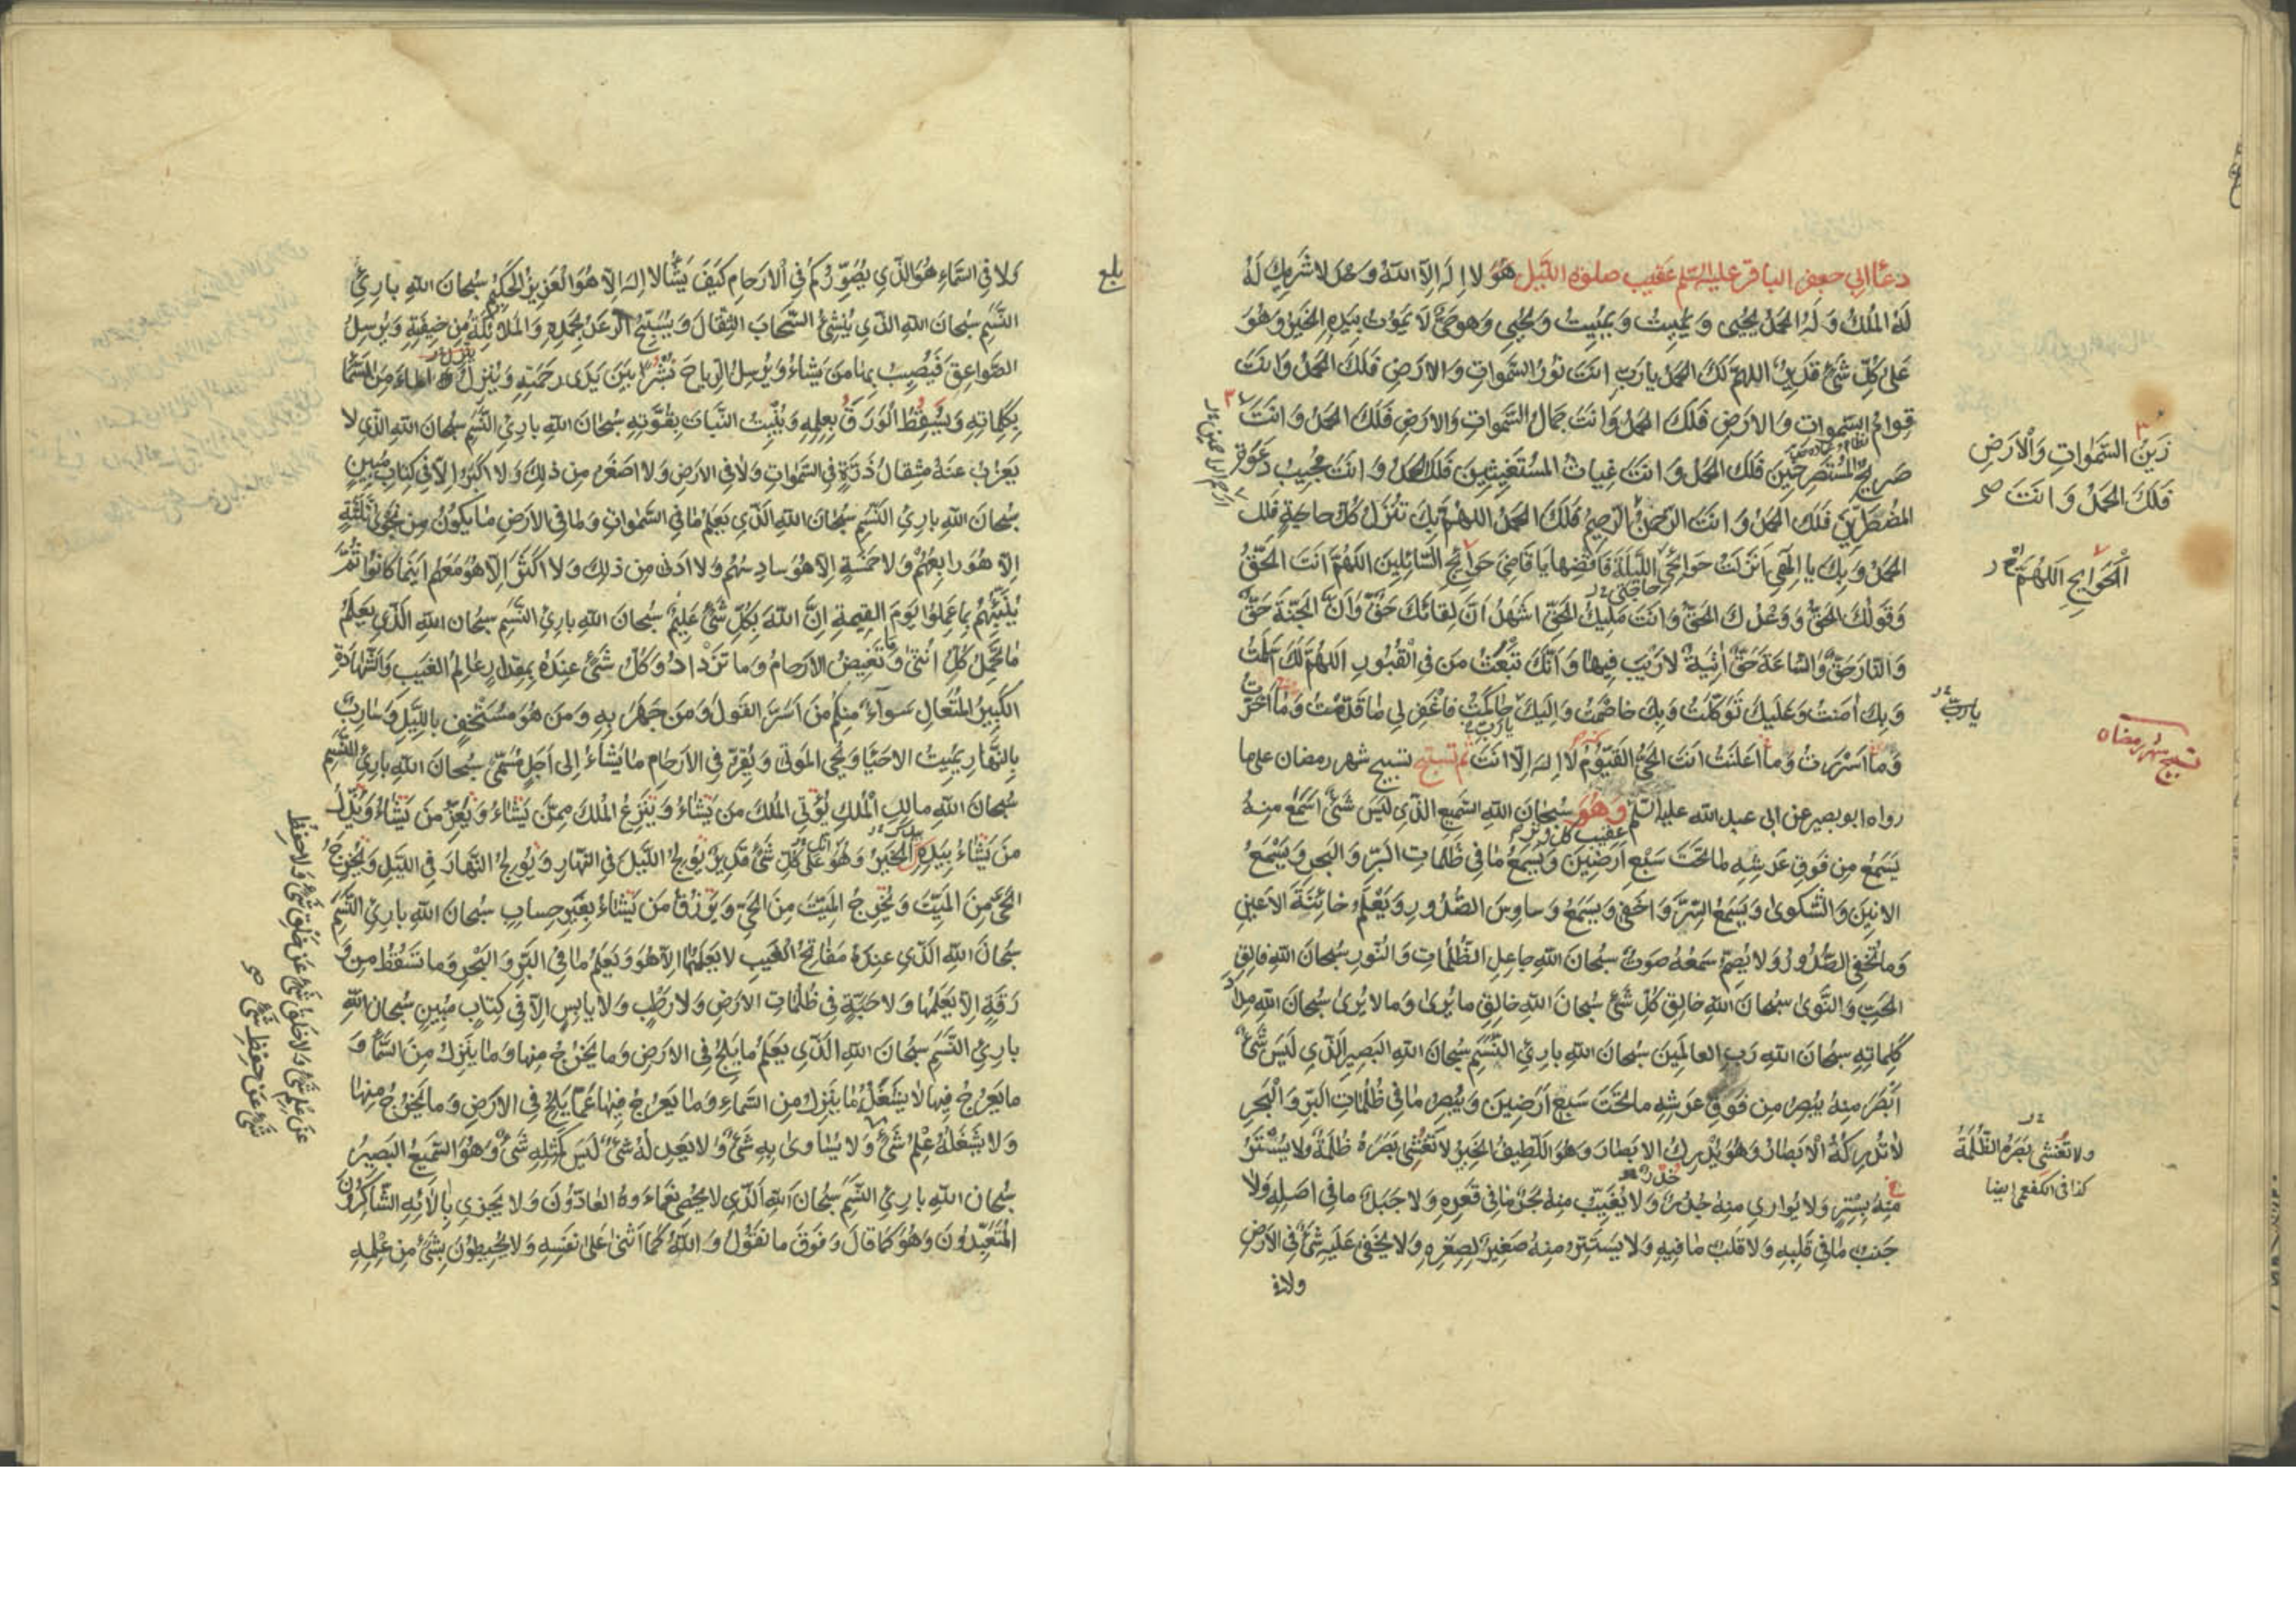 دعاء ابي جعفر الباقر عليه السلم عقيب صلوة الليل هو لا اله الا الله وحده لا شريك له
لَهُ المُلكُ وَ لَهُ الحَمدُ يُحيِى وَ يُمِيتُ وَ يُمِيتُ وَ يُحيِي وَ هو حَيٌّ لَا يَموُتُ بِيَدِهِ الخَيرُ وَ هُوَ
عَلى كُلِّ شَيْءٍ قَدِيرٌ اللهمَّ لَكَ الحَمدُ يا رَبِّ اَنتَ نُورُ السَّمواتِ وَ الارَضِ فَلَكَ الحَمدُ وَ اَنتَ
قِوامُ السَّمواتِ وَ الارَضِ فَلَكَ الحَمدُ وَ اَنتَ جَمالُ السَّمواتِ وَ الارَضِ فَلَكَ الحَمدُ وَ اَنتَ
زَيْنُ السَّمٰوَاتِ وَ الْاَرَضِ
فَلَكَ الحَمدُ وَ اَنتَ صح
صَرِيخُ المُستَصرِخِينَ فَلَكَ الحَمدُ وَ اَنتَ غِياثُ المُستَغِيثِينَ فَلَكَ الحَمدُ وَ اَنتَ مُجِيبُ دَعوَةِ
المُضطَرِّينَ فَلَكَ الحَمدُ وَ اَنتَ الرَّحمنُ الرَّحِيمُ فَلَكَ الحَمدُ اللهُمَّ بِكَ تُنزَلُ كُلُّ حاجَةٍ فَلَكَ
ارحم الراحمين
الحَمدُ وَ بِكَ يا اِلٰهِي اَنزَلتُ حَوائِجِيَ اللَّيلَةَ فَاقضِها يا قاضِيَ حَوائِجِ السّائِلِينَ اللهُمَّ اَنتَ الحَقُّ
الْحَوَايِجِ اللهُمَّ
حاجتي
وَ قَولُكَ الحَقُّ وَ وَعدُكَ الحَقُّ وَ اَنتَ مَلِيكُ الحَقِّ اَشهَدُ اَنَّ لِقائَكَ حَقٌّ وَ اَنَّ الجَنَّةَ حَقٌّ
وَ النّارَ حَقٌّ وَ السّاعَةَ حَقٌّ اٰتِيَةٌ لا رَيْبَ فِيها وَ اَنَّكَ تَبعَثُ مَن فِي الْقُبُورِ اللهُمَّ لَكَ اَسلَمتُ
وَ بِكَ اٰمَنتُ وَ عَلَيكَ تَوَكَّلتُ وَ بِكَ خاصَمتُ وَ اِلَيكَ حاكَمتُ فَاغفِر لِي ما قَدَّمتُ وَ ما اَخَّرتُ
يا رب
يا رب
وَ ما اَسرَرتُ وَ ما اَعلَنتُ اَنتَ الحَيُّ القَيُّومُ لا اله الا انت ثم تسبح تسبيح شهر رمضان على ما
تسبيح شهر رمضان
رواه ابو بصير عن ابي عبد الله عليه السلم وهُوَ سُبحانَ اللهِ السَّمِيعِ الَّذي لَيسَ شَيْءٌ اَسمَعَ مِنهُ
يَسمَعُ مِن فَوقِ عَرشِهِ ما تَحتَ سَبعِ اَرَضِينَ وَ يَسمَعُ ما فِي ظُلُماتِ البَرِّ وَ البَحرِ وَ يَسْمَعُ
الانِينَ وَ الشَّكوىٰ وَ يَسمَعُ السِّرَّ وَ اَخفى وَ يَسمَعُ وَساوِسَ الصُّدُورِ وَ يَعْلَمُ خائِنَةَ الاَعيُنِ
وَ ما تُخفِي الصُّدُورُ وَ لا يُصِمُّ سَمعَهُ صَوتٌ سُبحانَ اللهِ جاعِلِ الظُّلُماتِ وَ النُّورِ سُبحانَ اللهِ فالِقِ
الحَبِّ وَ النَّوىٰ سُبحانَ اللهِ خالِقِ كُلِّ شَيْءٍ سُبحانَ اللهِ خالِقِ ما يُرىٰ وَ ما لا يُرىٰ سُبحانَ اللهِ مِدادَ
كَلِماتِهِ سُبحانَ اللهِ رَبِّ العالَمِينَ سُبحانَ اللهِ بارِئِ النَّسَمِ سُبحانَ اللهِ البَصِيرِ الَّذِي لَيسَ شَيْءٌ
اَبْصَرَ مِنهُ يُبصِرُ مِن فَوقِ عَرشِهِ ما تَحتَ سَبعِ اَرَضِينَ وَ يُبصِرُ ما فِي ظُلُماتِ البَرِّ وَ الْبَحرِ
لا تُدرِكُهُ الْاَبصارُ وَ هُوَ يُدرِكُ الابصارَ وَ هُوَ اللَّطِيفُ الخَبِيرُ لا تُغشِي بَصَرَهُ ظُلمَةٌ وَ لا يُسْتَتَرُ
ولا تُغشي بَصَرَهُ الظُّلمَةُ
كذا في الكفعمي ايضا
مِنهُ بِسِترٍ وَ لا يُوارِي مِنهُ جُدُرٌ وَ لا يُغَيِّبُ مِنهُ بَحرٌ ما فِي قَعرِهِ وَ لا جَبَلٌ ما فِي اَصلِهِ وَلا
جَنبٌ ما فِي قَلبِهِ وَ لا قَلبٌ ما فِيهِ وَ لا يَستَتِرُ مِنهُ صَغِيرٌ لِصِغَرِهِ وَ لا يَخفى عَلَيهِ شَيْءٌ فِي الاَرضِ
ولا في
بلغ
وَ لا فِي السَّماءِ هُوَ الَّذي يُصَوِّرُكُم فِي الْاَرحامِ كَيْفَ يَشاءُ لا اِلهَ اِلّا هُوَ الْعَزِيزُ الْحَكِيمُ سُبحانَ اللهِ بارِئِ
النَّسَمِ سُبحانَ اللهِ الَّذي يُنْشِئُ السَّحابَ الثِّقالَ وَ يُسَبِّحُ الرَّعدُ بِحَمدِهِ وَ المَلائِكَةُ مِن خِيفَتِهِ وَ يُرسِلُ
الصَّواعِقَ فَيُصِيبُ بِها مَن يَشاءُ وَ يُرسِلُ الرِّياحَ نُشُراً بَينَ يَدَى رَحمَتِهِ وَ يُنزِلُ الماءَ مِنَ السَّماءِ
بِكَلِماتِهِ وَ يَسقُطُ الْوَرَقُ بِعِلمِهِ وَ يُنبِتُ النَّباتَ بِقُوَّتِهِ سُبحانَ اللهِ بارِئِ النَّسَمِ سُبحانَ اللهِ الَّذِي لا
يَعزُبُ عَنهُ مِثقالُ ذَرَّةٍ فِي السَّمٰواتِ وَ لا فِي الارَضِ وَ لا اَصغَرُ مِن ذٰلِكَ وَ لا اَكبَرُ اِلّا فِي كِتابٍ مُبِينٍ
سُبحانَ اللهِ بارِئِ النَّسَمِ سُبحانَ اللهِ الَّذِي يَعلَمُ ما فِي السَّمٰواتِ وَ ما فِي الارَضِ ما يَكُونُ مِن نَجوىٰ ثَلٰثَةٍ
اِلّا هُوَ رابِعُهُم وَ لا خَمسَةٍ اِلّا هُوَ سادِسُهُم وَ لا اَدنى مِن ذٰلِكَ وَ لا اَكثَرَ اِلّا هُوَ مَعَهُم اَينَما كانُوا ثُمَّ
يُنَبِّئُهُم بِما عَمِلُوا يَومَ القِيمةِ اِنَّ اللهَ بِكُلِّ شَيْءٍ عَلِيمٌ سُبحانَ اللهِ بارِئِ النَّسَمِ سُبحانَ اللهِ الَّذي يَعلَمُ
ما تَحمِلُ كُلُّ اُنثىٰ وَ ما تَغِيضُ الارَحامُ وَ ما تَزْدادُ وَ كُلُّ شَيْءٍ عِندَهُ بِمِقدارٍ عالِمُ الغَيبِ وَ الشَّهادَةِ
الكَبِيرُ المُتَعالِ سَواءٌ مِنكُم مَن اَسَرَّ القَولَ وَ مَن جَهَرَ بِهِ وَ مَن هُوَ مُستَخفٍ بِاللَّيلِ وَ سارِبٌ
بِالنَّهارِ يُمِيتُ الاحياءَ وَ يُحيِي المَوتى وَ يُقِرُّ فِي الارَحامِ ما يَشاءُ اِلى اَجَلٍ مُسَمّىً سُبحانَ اللهِ بارِئِ النَّسَمِ
سُبحانَ اللهِ مالِكِ الْمُلكِ يُؤتِي المُلكَ مَن يَشاءُ وَ يَنزِعُ المُلكَ مِمَّن يَشاءُ وَ يُعِزُّ مَن يَشاءُ وَ يُذِلُّ
مَن يَشاءُ بِيَدِهِ الخَيرُ وَ هُوَ عَلى كُلِّ شَيْءٍ قَدِيرٌ يُولِجُ اللَّيلَ فِي النَّهارِ وَ يُولِجُ النَّهارَ فِي اللَّيلِ وَ يُخرِجُ
الحَيَّ مِنَ المَيِّتِ وَ يُخرِجُ المَيِّتَ مِنَ الحَيِّ وَ يَرزُقُ مَن يَشاءُ بِغَيرِ حِسابٍ سُبحانَ اللهِ بارِئِ النَّسَمِ
سُبحانَ اللهِ الَّذي عِندَهُ مَفاتِحُ الغَيبِ لا يَعلَمُها اِلّا هُوَ وَ يَعلَمُ ما فِي البَرِّ وَ البَحرِ وَ ما تَسقُطُ مِن وَ
رَقَةٍ اِلّا يَعلَمُها وَ لا حَبَّةٍ فِي ظُلُماتِ الارَضِ وَ لا رَطبٍ وَ لا يابِسٍ اِلّا فِي كِتابٍ مُبِينٍ سُبحانَ اللهِ
بارِئِ النَّسَمِ سُبحانَ اللهِ الَّذي يَعلَمُ ما يَلِجُ فِي الارَضِ وَ ما يَخرُجُ مِنها وَ ما يَنزِلُ مِنَ السَّماءِ وَ
ما يَعرُجُ فِيها لا يَشغَلُهُ ما يَنزِلُ مِنَ السَّماءِ وَ ما يَعرُجُ فِيها عَمّا يَلِجُ فِي الارَضِ وَ ما يَخرُجُ مِنها
وَ لا يَشغَلُهُ عِلمُ شَيْءٍ وَ لا يُساوىٰ بِهِ شَيْءٌ وَ لا يَعدِلُهُ شَيْءٌ لَيسَ كَمِثلِهِ شَيْءٌ وَ هُوَ السَّمِيعُ البَصِيرُ
عَن عِلمِ شَيْءٍ وَ لا خَلقُ شَيْءٍ عَن خَلقِ شَيْءٍ وَ لا حِفظُ
شَيْءٍ عَن حِفظِ شَيْءٍ صح
سُبحانَ اللهِ بارِئِ النَّسَمِ سُبحانَ اللهِ الَّذي لا يُحصِي نَعماءَهُ العادُّونَ وَ لا يَجزِي بِاٰلائِهِ الشّاكِرُونَ
المُتَعَبِّدُونَ وَ هُوَ كَما قالَ وَ فَوقَ ما نَقُولُ وَ اللهُ كَما اَثنىٰ عَلىٰ نَفسِهِ وَ لا يُحِيطُونَ بِشَيْءٍ مِن عِلْمِهِ